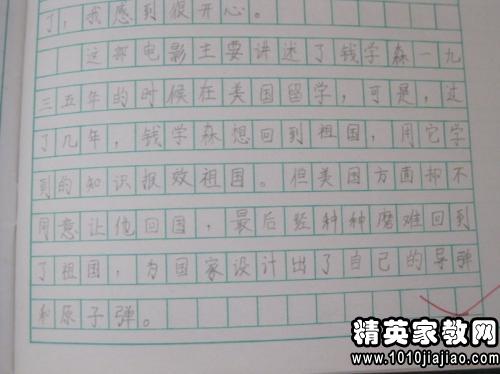 了，我感到很开心。
这部电影主要讲述了钱学森一九
三五年的时候在美国留学，可是，过
了几年，钱学森想回到祖国，用它学
到的知识报效祖国。但美国方面却不
同意让他回国，最后经种种磨难回到
了祖国，为国家设计出了自己的导弹
和原子弹。
精英家教网
www.1010jiajiao.com